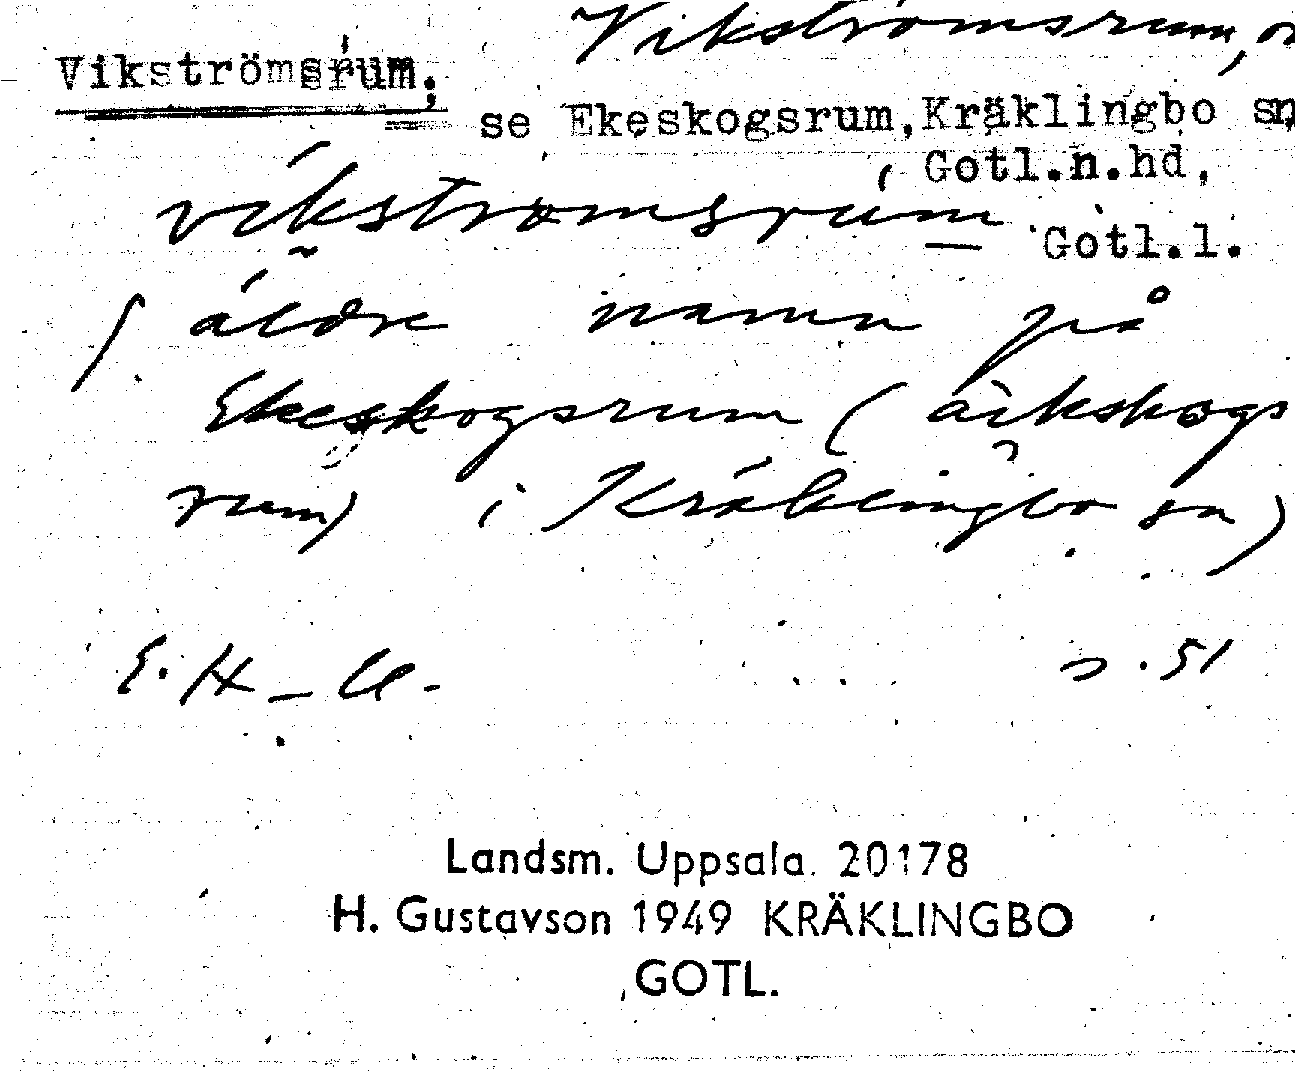 Vikströmsrum,
Vikströmsrum;
se Ekeskogsrum, Kräklingbo sn,
Gotl.n.hd,
vikströmsrum
Gotl.l.
äldre namn på
Ekeskogsrum (äikskogs
rum) i Kräklingbo sn)
E. H – U. s. 51
Landsm. Uppsala. 20178
H. Gustavson 1949 KRÄKLINGBO
GOTL.